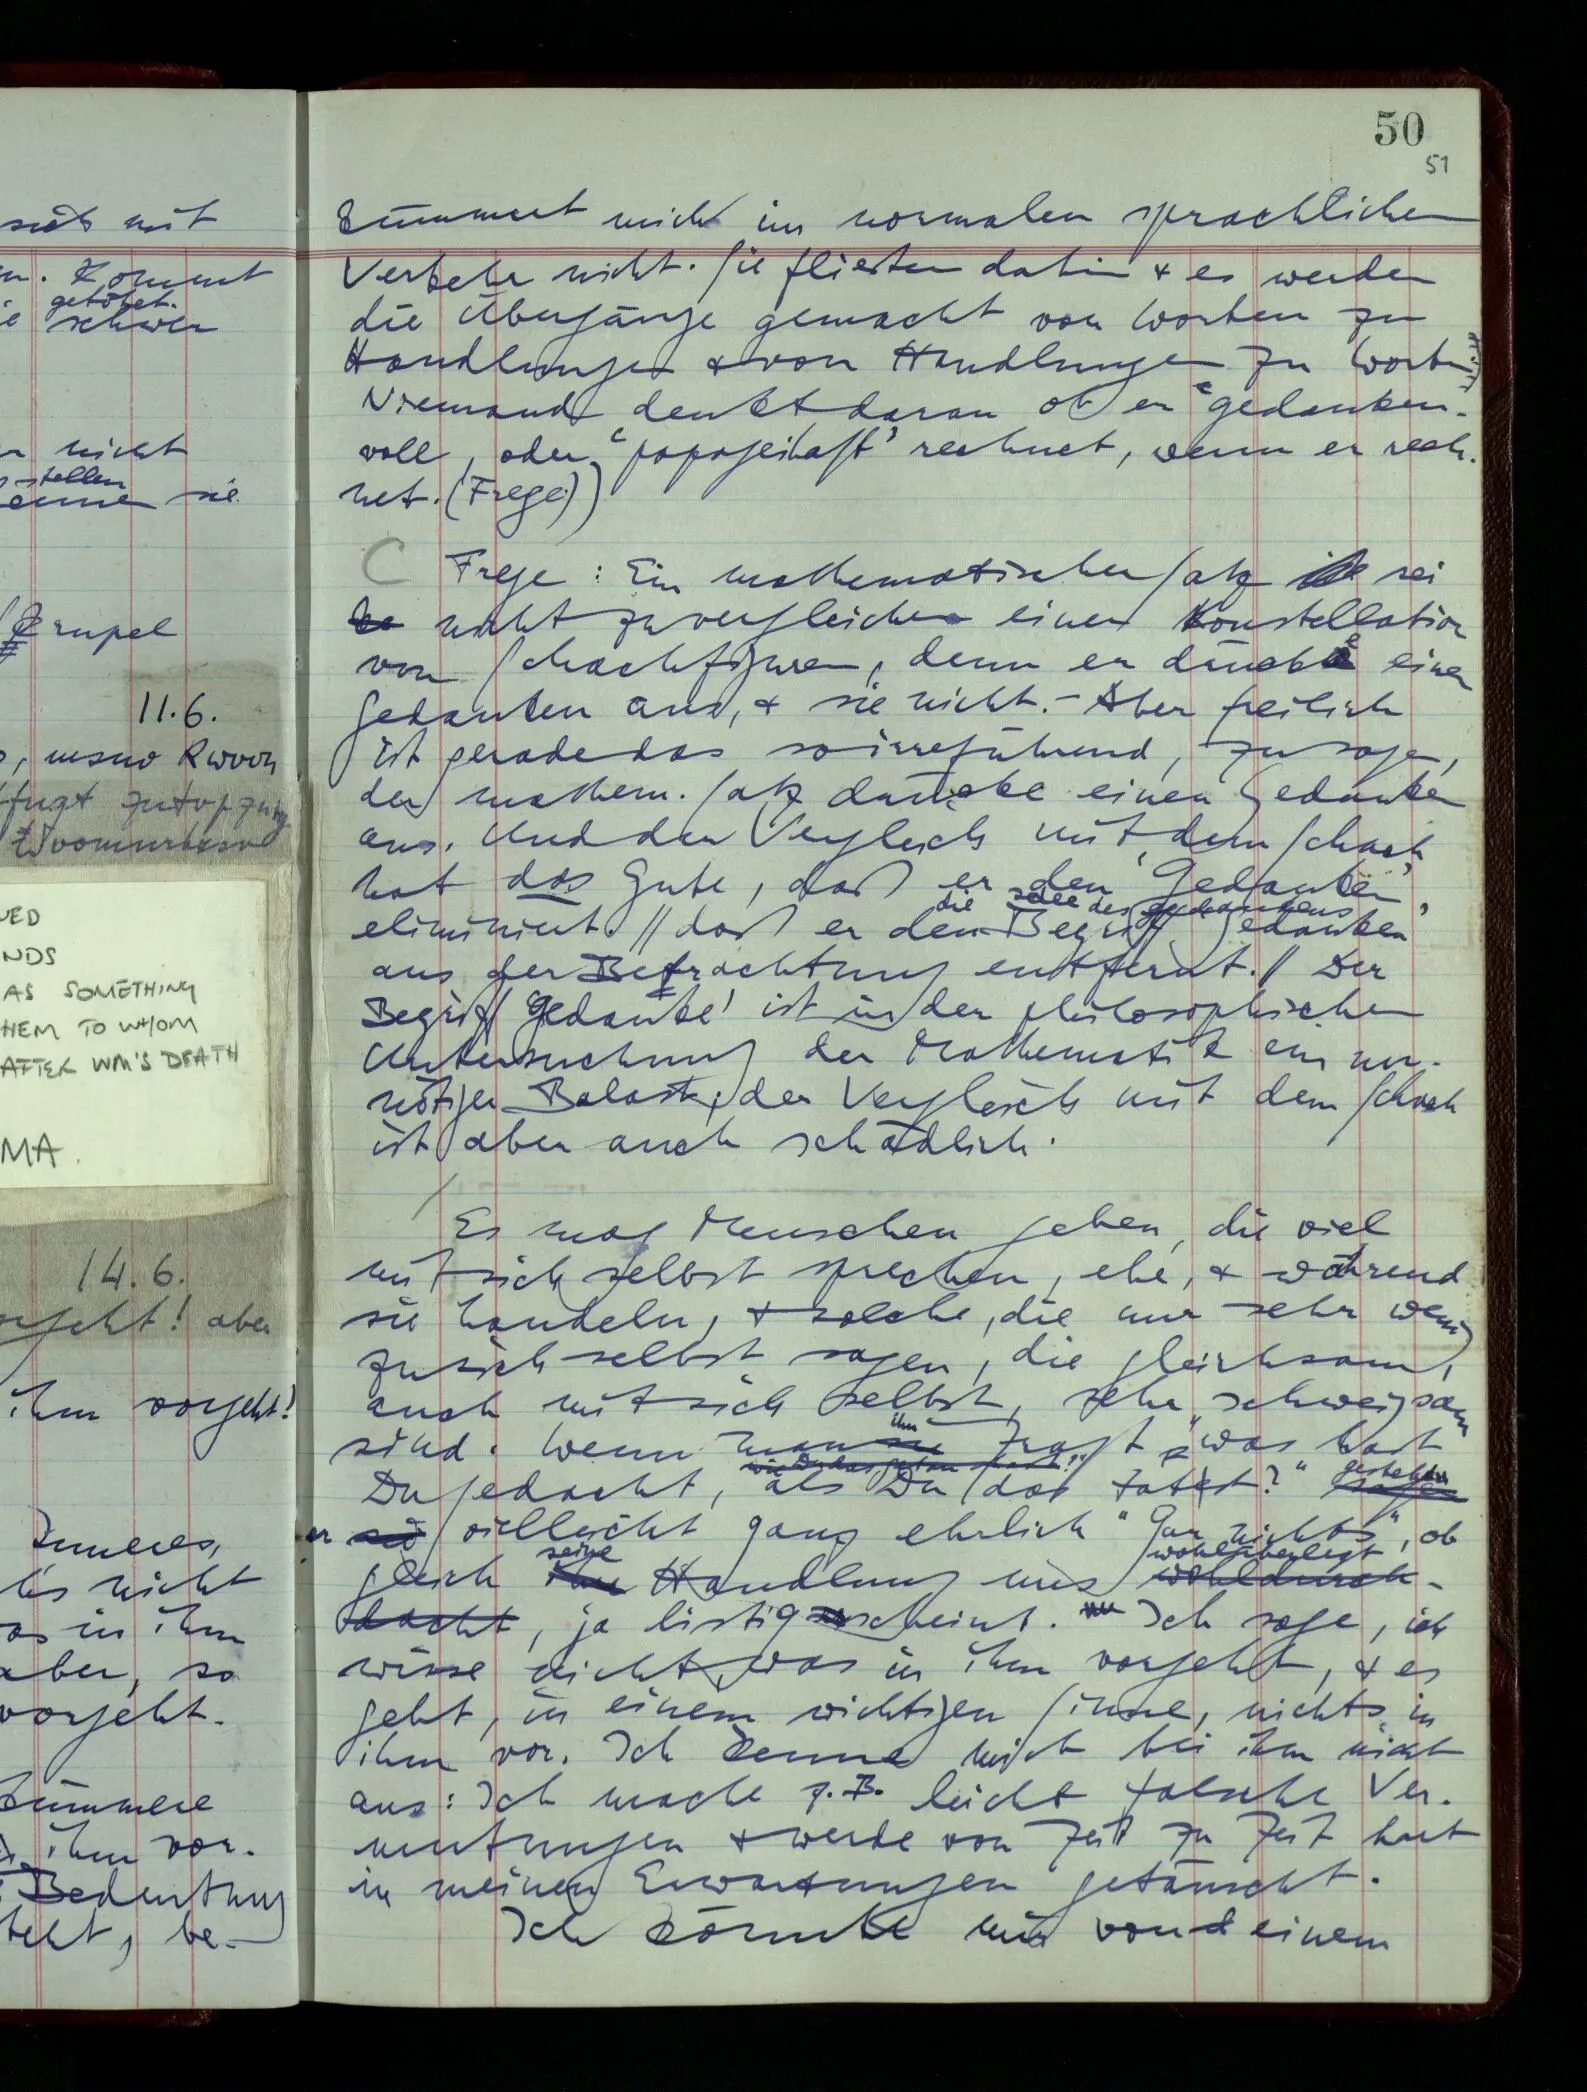 sich mit
n. Kommt
getötet.
e schwer
n nicht
stellen
sie
Skrupel
11.6.
, nsmo Rwoon
14.6.
vorgeht! aber
ihm vorgeht!
Inneres,
nicht
as in ihm
aber, so
vorgeht.
kümmere
ihm vor.
Bedeutung
teht, be-
VED
NDS
AS SOMETHING
HEM TO WHOM
AFTER WM'S DEATH
MA.
50
51
kümmert mich im normalen sprachlichen
Verkehr nicht. Sie fließen dahin & es werden
die Übergänge gemacht von Worten zu
Handlungen & von Handlungen zu Worten.
Niemand denkt daran ob er 'gedanken-
voll', oder 'papageihaft' rechnet, wenn er rech-
net. (Frege))
C Frege: Ein mathematischer Satz ist sei
nicht zu vergleichen einer Konstellation
von Schachfiguren, denn er drücke einen
Gedanken aus, & sie nicht. – Aber freilich
ist gerade das so irreführend, zu sagen,
der mathem. Satz drücke einen Gedanken
aus. Und der Vergleich mit dem Schach
hat das Gute, daß er den 'Gedanken'
die Idee des Gedankens
eliminiert // daß er den Begriff 'Gedanken'
aus der Betrachtung entfernt. // Der
Begriff 'Gedanke' ist in der philosophischen
Untersuchung der Mathematik ein un-
nötiger Balast; der Vergleich mit dem Schach
ist aber auch schädlich.
/ Es mag Menschen geben, die viel
mit sich selbst sprechen, ehe, & während
sie handeln, & solche, die nur sehr wenig
zu sich selbst sagen, die gleichsam,
auch mit sich selbst, sehr schweigsam
ihn
sind. Wenn man sie fragt "was hast
gesteht
Du gedacht, als Du das tatst?" sagen
er sie vielleicht ganz ehrlich "Gar nichts", ob-
seine wohlüberlegt
gleich ihre Handlung uns wohldurch-
dacht, ja listig erscheint. Ich sage, ich
wisse nicht, was in ihm vorgeht, & es
geht, in einem wichtigen Sinne, nichts in
ihm vor. Ich kenne mich bei ihm nicht
aus: Ich mache z.B. leicht falsche Ver-
mutungen & werde von Zeit zu Zeit hart
in meinen Erwartungen getäuscht.
Ich könnte mir von einem